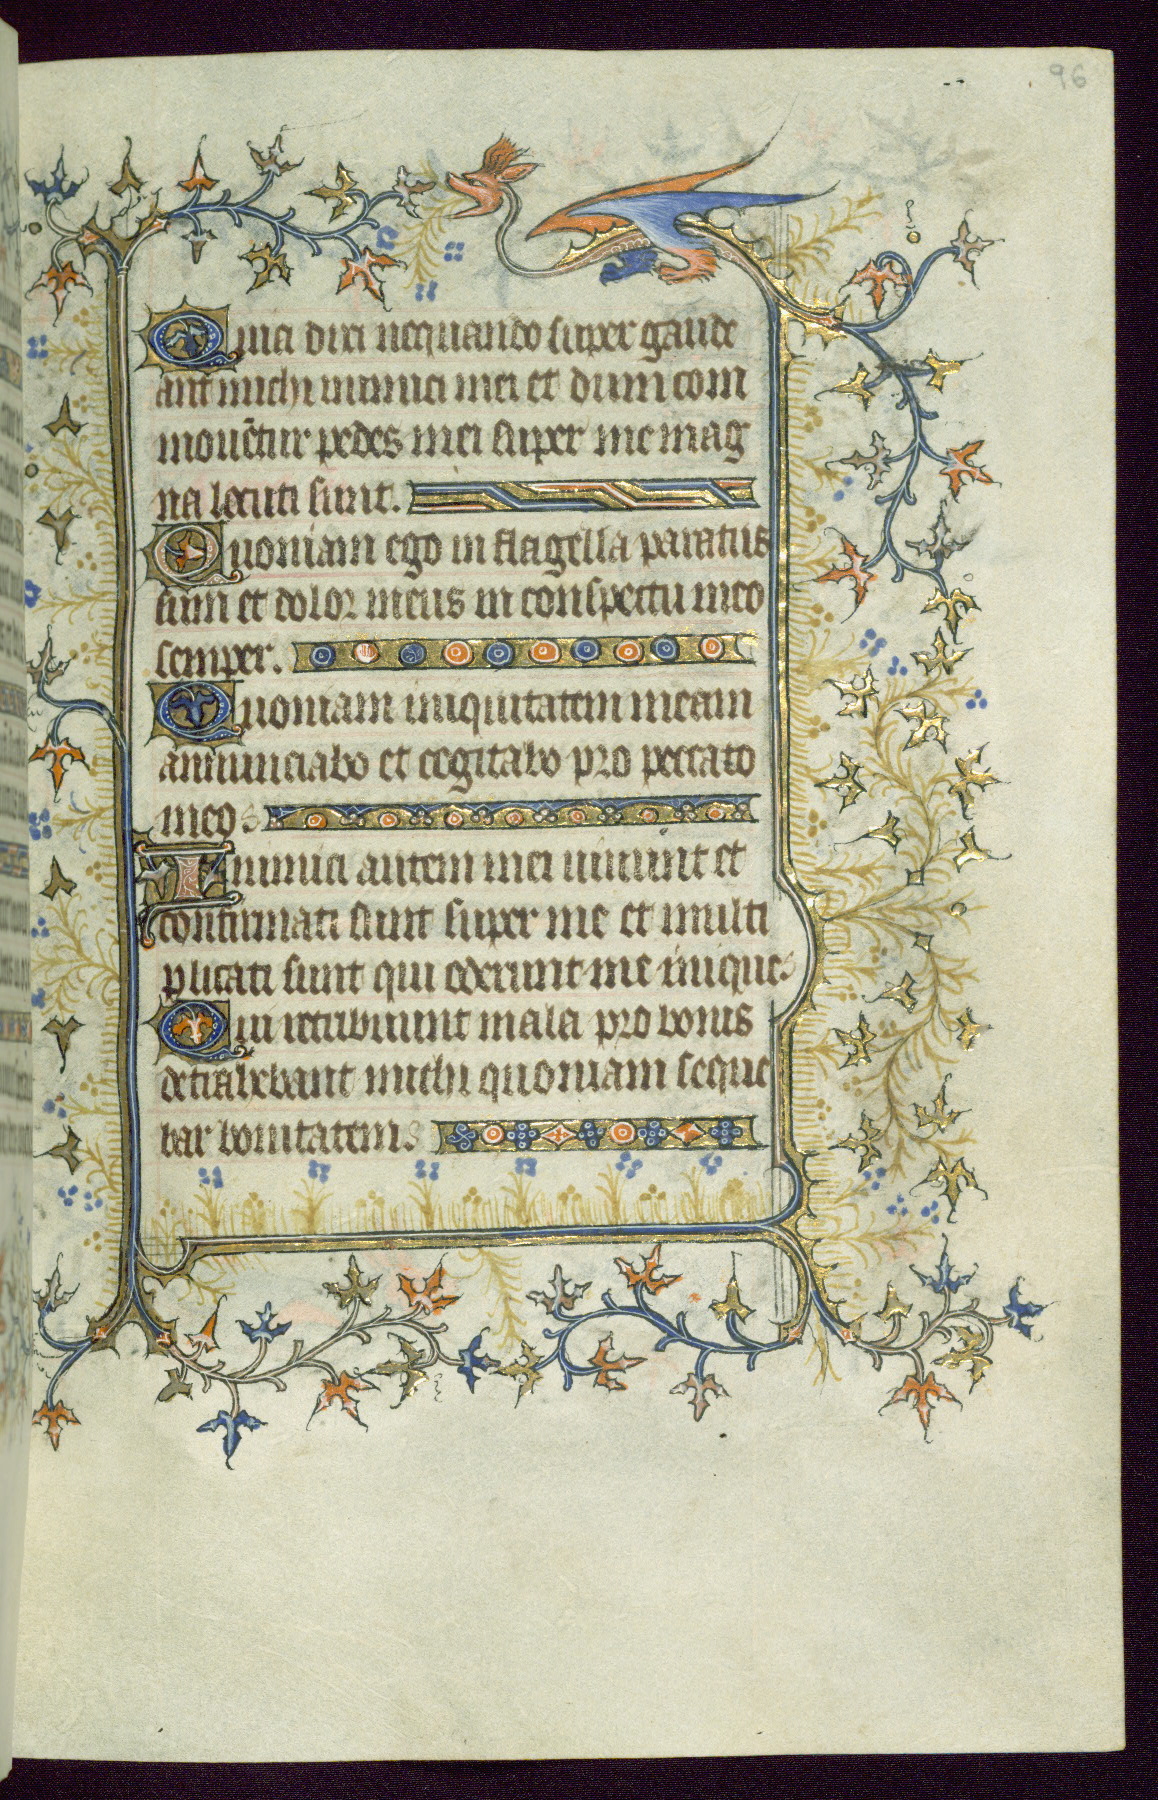 96
Quia dixi nequando super gaude
ant michi inimici mei et dum com
mouētur pedes mei super me mag
na locuti sunt.
Quoniam ego in flagella paratus
sum et dolor meus in conspectu meo
semper.
Quoniam iniquitatem meam
annunciabo et cogitabo pro peccato
meo
Inimici autem mei uiuunt et
confirmati sunt super me et multi
plicati sunt qui oderunt me inique
Qui retribuunt mala pro bonis
detrahebant michi quoniam seque
bar bonitatem